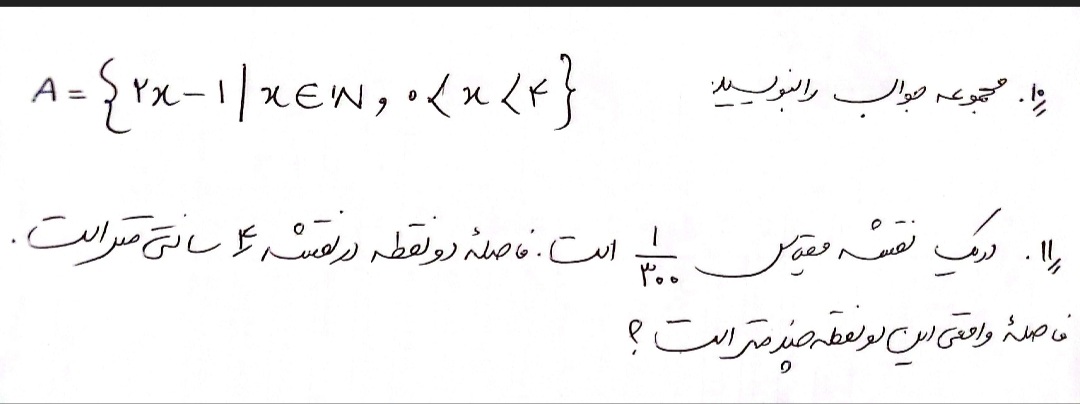 ۱۰. مجموعه جواب را بنویسید A = {۲x − ۱ | x ∈ N, ۰ < x < ۴}
۱۱. در یک نقشه مقیاس ۱/۳۰۰ است. فاصلهٔ دو نقطه در نقشه ۴ سانتی متر است.
فاصلهٔ واقعی این دو نقطه چند متر است؟